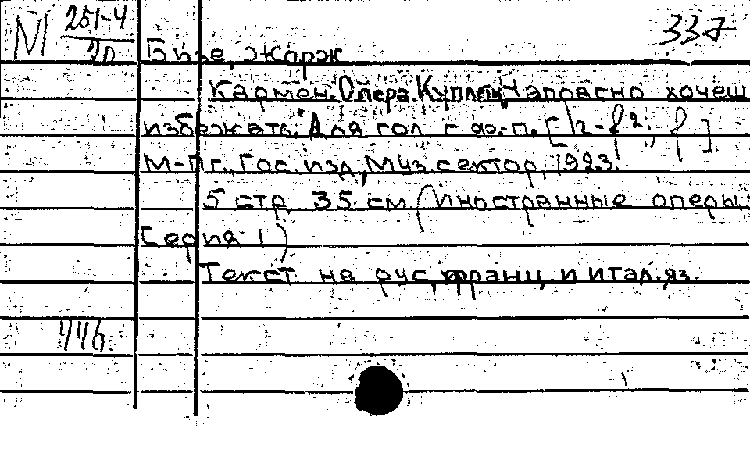 М 251-4 337
20 Бизе, Жорж
Кармен. Опера. Куплеты "Напрасно хочеш
избежать". Для гол. с ф.-п. [h-f²; f].
М-Пг., Гос. изд., Муз. сектор, 1923.
5 стр. 35 см. (Иностранные оперы.
Серия 1)
Текст на рус., франц. и итал. яз.
446.